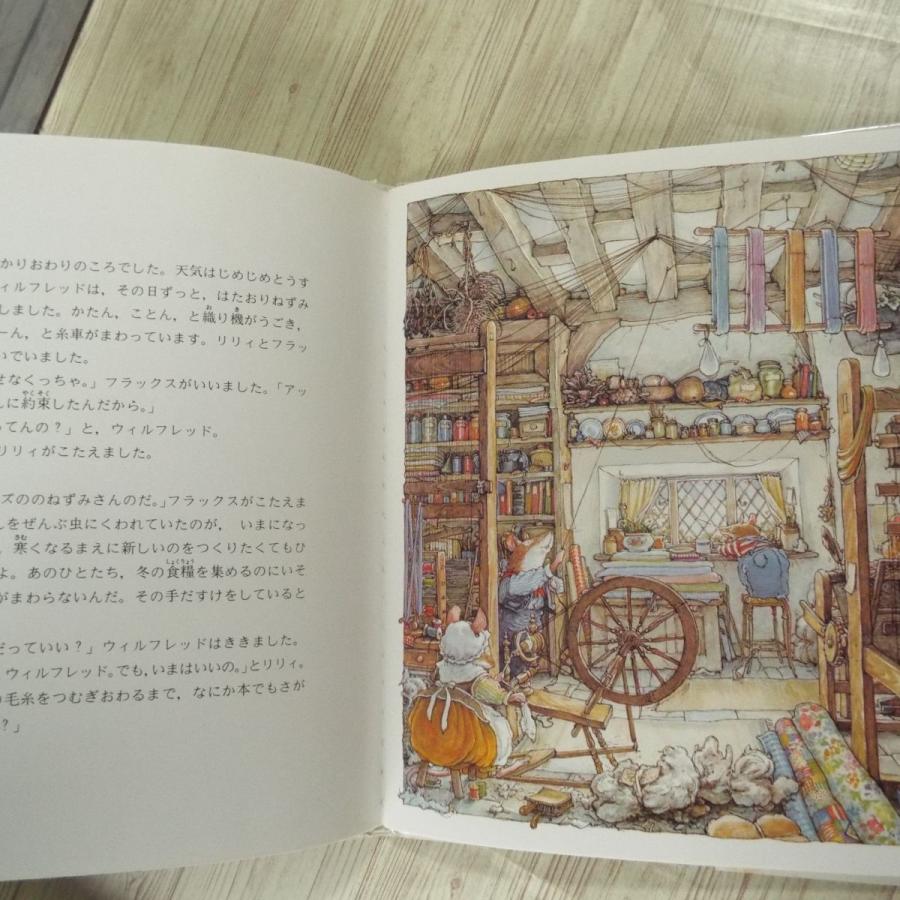 かりおわりのころでした。天気はじめじめとうす
ィルフレッドは，その日ずっと，はたおりねずみ
しました。かたん，ことん，と織り機がうごき，
ーん，と糸車がまわっています。リリィとフラッ
いでいました。
せなくっちゃ。」フラックスがいいました。「アッ
んに約束したんだから。」
ってんの？」と，ウィルフレッド。
リリィがこたえました。
ズののねずみさんのだ。」フラックスがこたえま
しをぜんぶ虫にくわれていたのが，いまになっ
寒くなるまえに新しいのをつくりたくてもひ
よ。あのひとたち，冬の食糧を集めるのにいそ
がまわらないんだ。その手だすけをしていると
だっていい？」ウィルフレッドはききました。
ウィルフレッド。でも，いまはいいの。」とリリィ。
毛糸をつむぎおわるまで，なにか本でもさが
？」